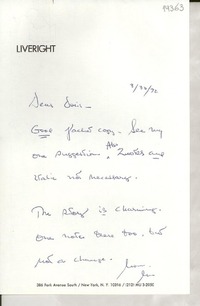 19363
LIVERIGHT
Dear Doris –
Good jacket copy. See my
one suggestion. Also, quotes and
italic not necessary.
The story is charming.
One note there too, but
not a change.
386 Park Avenue South / New York, N. Y. 10016 / (212) MU 3-2000